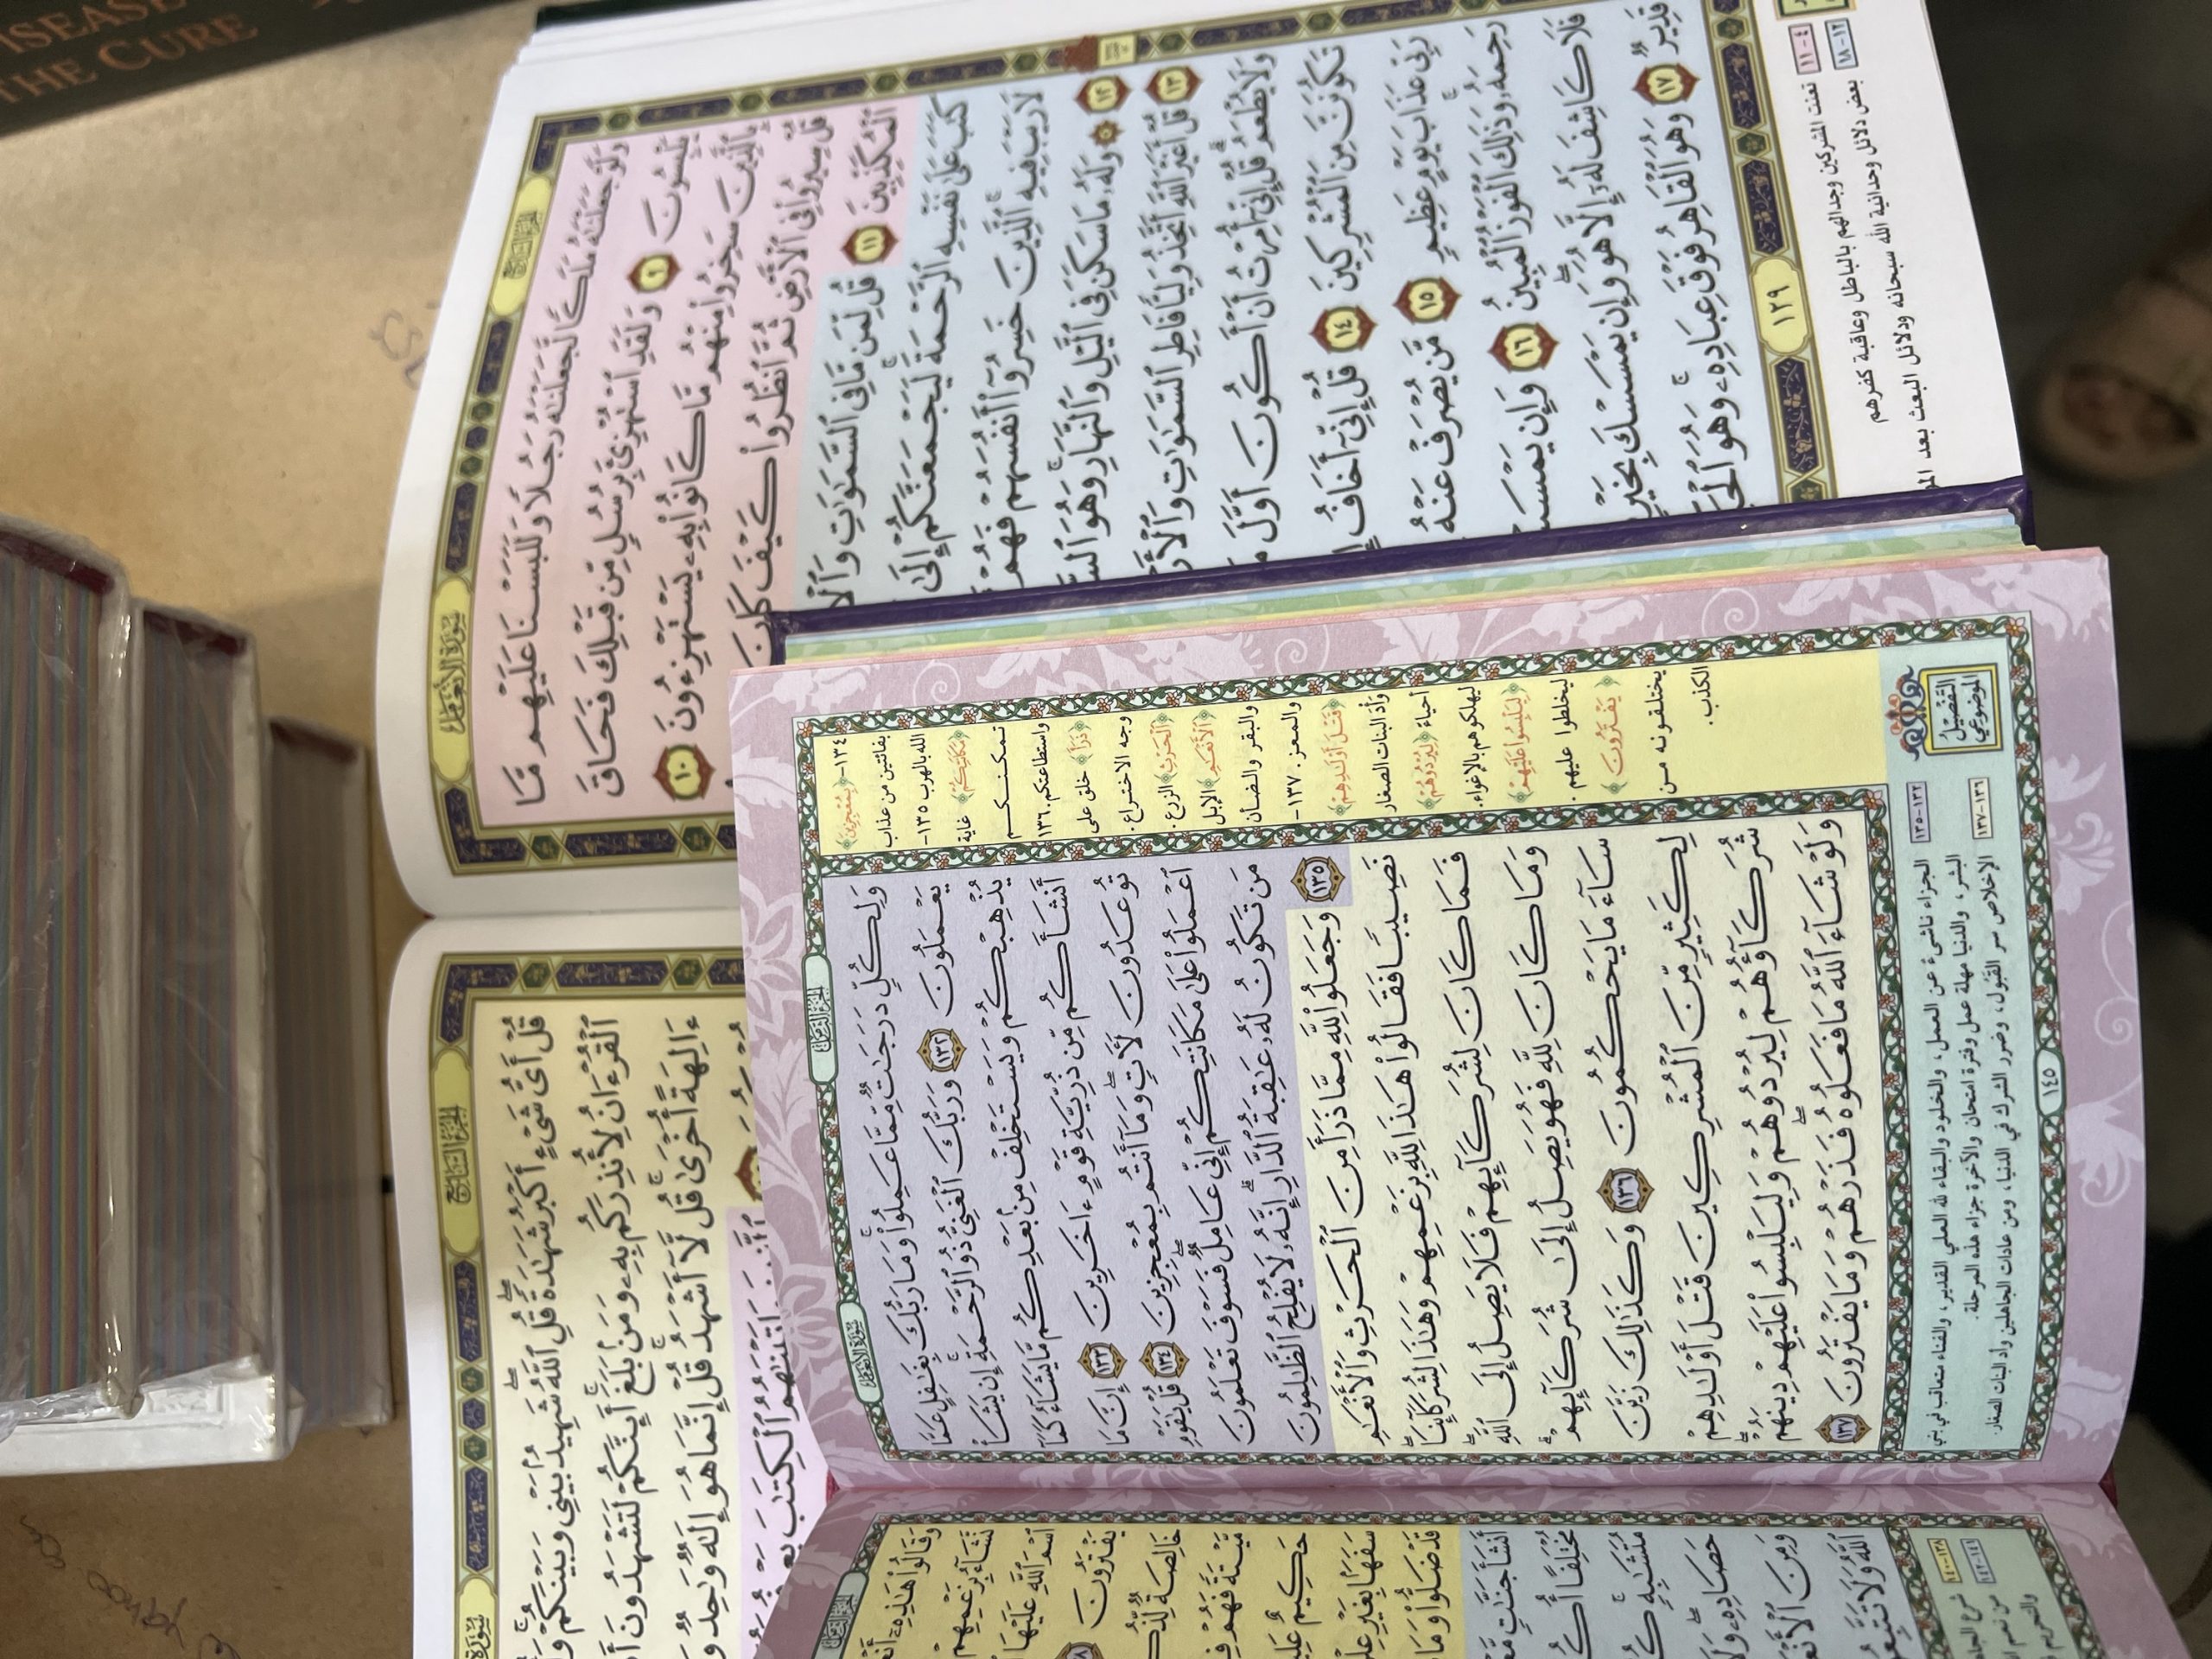 ISEASE
THE CURE
سُورَةُ الأَنْعَامِ
الجُزْءُ السَّابِعُ
وَلَوْ جَعَلْنَٰهُ مَلَكًا لَّجَعَلْنَٰهُ رَجُلًا وَلَلَبَسْنَا عَلَيْهِم مَّا
يَلْبِسُونَ ٩ وَلَقَدِ ٱسْتُهْزِئَ بِرُسُلٍ مِّن قَبْلِكَ فَحَاقَ
بِٱلَّذِينَ سَخِرُوا۟ مِنْهُم مَّا كَانُوا۟ بِهِۦ يَسْتَهْزِءُونَ ١٠
قُلْ سِيرُوا۟ فِى ٱلْأَرْضِ ثُمَّ ٱنظُرُوا۟ كَيْفَ كَانَ
ٱلْمُكَذِّبِينَ ١١ قُل لِّمَن مَّا فِى ٱلسَّمَٰوَٰتِ وَٱلْ
كَتَبَ عَلَىٰ نَفْسِهِ ٱلرَّحْمَةَ ۚ لَيَجْمَعَنَّكُمْ إِلَىٰ
لَا رَيْبَ فِيهِ ۚ ٱلَّذِينَ خَسِرُوٓا۟ أَنفُسَهُمْ فَهُمْ
١٢ وَلَهُۥ مَا سَكَنَ فِى ٱلَّيْلِ وَٱلنَّهَارِ ۚ وَهُوَ ٱلسَّ
١٣ قُلْ أَغَيْرَ ٱللَّهِ أَتَّخِذُ وَلِيًّا فَاطِرِ ٱلسَّمَٰوَٰتِ وَٱلْأَرْ
وَلَا يُطْعَمُ ۗ قُلْ إِنِّىٓ أُمِرْتُ أَنْ أَكُونَ أَوَّلَ
تَكُونَنَّ مِنَ ٱلْمُشْرِكِينَ ١٤ قُلْ إِنِّىٓ أَخَافُ
رَبِّى عَذَابَ يَوْمٍ عَظِيمٍ ١٥ مَّن يُصْرَفْ عَنْهُ
رَحِمَهُۥ ۚ وَذَٰلِكَ ٱلْفَوْزُ ٱلْمُبِينُ ١٦ وَإِن يَمْسَسْ
فَلَا كَاشِفَ لَهُۥٓ إِلَّا هُوَ ۖ وَإِن يَمْسَسْكَ بِخَيْرٍ
قَدِيرٌ ١٧ وَهُوَ ٱلْقَاهِرُ فَوْقَ عِبَادِهِۦ ۚ وَهُوَ ٱلْحَ
١٢٩
٤-١١ تعنت المشركين وجدالهم بالباطل وعاقبة كفرهم
١٢-١٨ بعض دلائل وحدانية الله سبحانه ودلائل البعث بعد المو
سُورَةُ
الجُزْءُ السَّابِعُ
قُلْ أَىُّ شَىْءٍ أَكْبَرُ شَهَٰدَةً ۖ قُلِ ٱللَّهُ ۖ شَهِيدٌۢ بَيْنِى وَبَيْنَكُمْ ۚ وَ
ٱلْقُرْءَانُ لِأُنذِرَكُم بِهِۦ وَمَنۢ بَلَغَ ۚ أَئِنَّكُمْ لَتَشْهَدُونَ أَ
ءَالِهَةً أُخْرَىٰ ۚ قُل لَّآ أَشْهَدُ ۚ قُلْ إِنَّمَا هُوَ إِلَٰهٌ وَٰحِدٌ وَ
ءَاتَيْنَٰهُمُ ٱلْكِتَٰبَ يَعْ
سُورَةُ الأَنْعَامِ
الجُزْءُ الثَّامِنُ
وَلِكُلٍّ دَرَجَٰتٌ مِّمَّا عَمِلُوا۟ ۚ وَمَا رَبُّكَ بِغَٰفِلٍ عَمَّا
يَعْمَلُونَ ١٣٢ وَرَبُّكَ ٱلْغَنِىُّ ذُو ٱلرَّحْمَةِ ۚ إِن يَشَأْ
يُذْهِبْكُمْ وَيَسْتَخْلِفْ مِنۢ بَعْدِكُم مَّا يَشَآءُ كَمَآ
أَنشَأَكُم مِّن ذُرِّيَّةِ قَوْمٍ ءَاخَرِينَ ١٣٣ إِنَّ مَا
تُوعَدُونَ لَءَاتٍ ۖ وَمَآ أَنتُم بِمُعْجِزِينَ ١٣٤ قُلْ يَٰقَوْمِ
ٱعْمَلُوا۟ عَلَىٰ مَكَانَتِكُمْ إِنِّى عَامِلٌ ۖ فَسَوْفَ تَعْلَمُونَ
مَن تَكُونُ لَهُۥ عَٰقِبَةُ ٱلدَّارِ ۗ إِنَّهُۥ لَا يُفْلِحُ ٱلظَّٰلِمُونَ
١٣٥ وَجَعَلُوا۟ لِلَّهِ مِمَّا ذَرَأَ مِنَ ٱلْحَرْثِ وَٱلْأَنْعَٰمِ
نَصِيبًا فَقَالُوا۟ هَٰذَا لِلَّهِ بِزَعْمِهِمْ وَهَٰذَا لِشُرَكَآئِنَا ۖ
فَمَا كَانَ لِشُرَكَآئِهِمْ فَلَا يَصِلُ إِلَى ٱللَّهِ ۖ
وَمَا كَانَ لِلَّهِ فَهُوَ يَصِلُ إِلَىٰ شُرَكَآئِهِمْ ۗ
سَآءَ مَا يَحْكُمُونَ ١٣٦ وَكَذَٰلِكَ زَيَّنَ
لِكَثِيرٍ مِّنَ ٱلْمُشْرِكِينَ قَتْلَ أَوْلَٰدِهِمْ
شُرَكَآؤُهُمْ لِيُرْدُوهُمْ وَلِيَلْبِسُوا۟ عَلَيْهِمْ دِينَهُمْ ۖ
وَلَوْ شَآءَ ٱللَّهُ مَا فَعَلُوهُ ۖ فَذَرْهُمْ وَمَا يَفْتَرُونَ ١٣٧
١٣٤-﴿بِمُعْجِزِينَ﴾
بفائتين من عذاب
الله بالهرب ١٣٥-
﴿مَكَانَتِكُمْ﴾ غاية
تمكنكم
واستطاعتكم. ١٣٦-
﴿ذَرَأَ﴾ خلق على
وجه الاختراع.
﴿ٱلْحَرْثِ﴾ الزرع.
﴿ٱلْأَنْعَٰمِ﴾ الإبل
والبقر والضأن
والمعز. ١٣٧-
﴿قَتْلَ أَوْلَٰدِهِمْ﴾
وأد البنات الصغار
أحياء ﴿لِيُرْدُوهُمْ﴾
ليهلكوهم بالإغواء.
﴿لِيَلْبِسُوا۟ عَلَيْهِمْ﴾
ليخلطوا عليهم.
﴿يَفْتَرُونَ﴾
يختلقونه من
الكذب.
التَّفْصِيلُ
الموضوعي
١٣٢-١٣٥ الجزاء ناشىء عن العمل، والخلود والبقاء لله العلي القدير، والفناء متعاقب في بني
البشر، والدنيا مهلة عمل وفترة امتحان والآخرة جزاء هذه المرحلة.
١٣٦-١٣٧ الإخلاص سر القبول، وصور الشرك في الدنيا، ومن عادات الجاهلين وأد البنات الصغار.
١٤٥
وَقَالُوا۟ هَٰذِهِۦٓ أَنْعَ
نَّشَآءُ بِزَعْمِهِمْ
ٱسْمَ ٱللَّهِ عَلَيْهَا
يَفْتَرُونَ
خَالِصَةٌ لِّذُكُ
مَّيْتَةً فَهُمْ فِ
حَكِيمٌ عَلِي
سَفَهًۢا بِغَيْرِ عِلْ
قَدْ ضَلُّوا۟ وَمَا
أَنشَأَ جَنَّٰتٍ مَّعْ
مُخْتَلِفًا أُكُ
مُتَشَٰبِهٍ ۚ كُ
حَصَادِهِۦ ۖ وَلَا
وَمِنَ ٱلْأَنْعَ
ٱللَّهُ وَلَا تَتَّبِعُ
١٣٨-١٤٠
١٤١-١٤٢